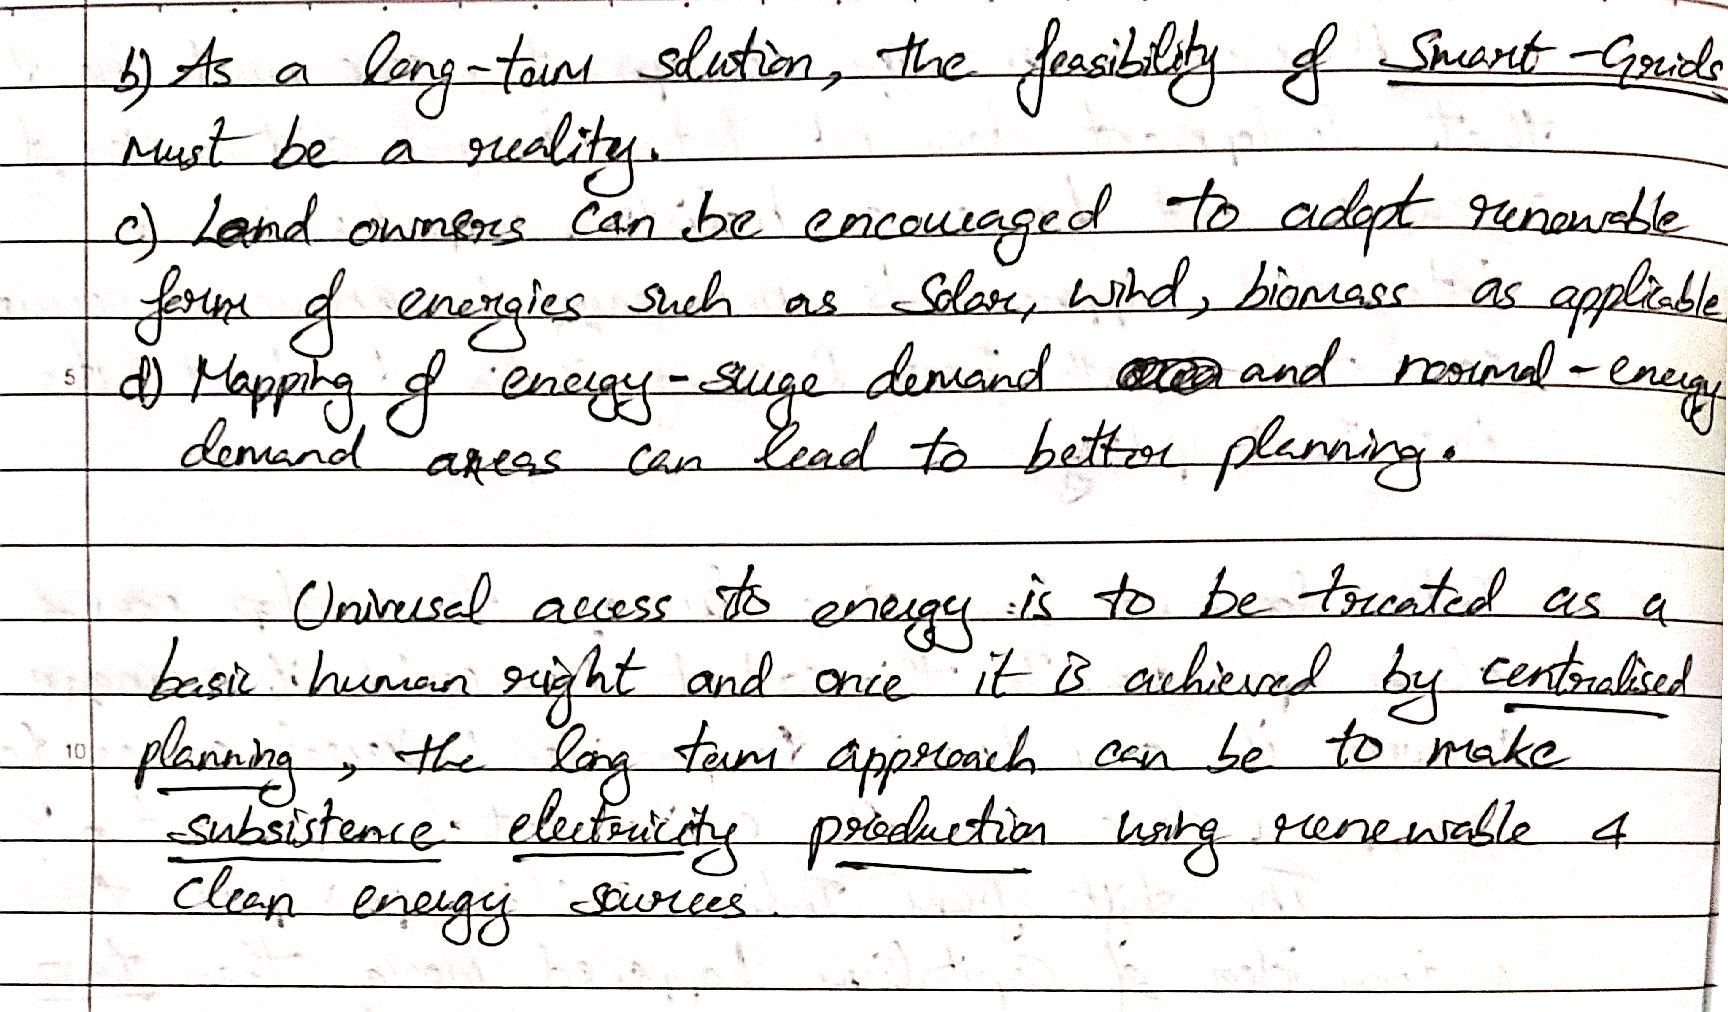 b) As a long-term solution, the feasibility of Smart-Grids
must be a reality.
c) Land owners can be encouraged to adopt renewable
form of energies such as Solar, wind, biomass as applicable
5 d) Mapping of energy-surge demand and normal-energy
demand areas can lead to better planning.
Universal access to energy is to be treated as a
basic human right and once it is achieved by centralised
10 planning, the long term approach can be to make
subsistence electricity production using renewable &
clean energy sources.